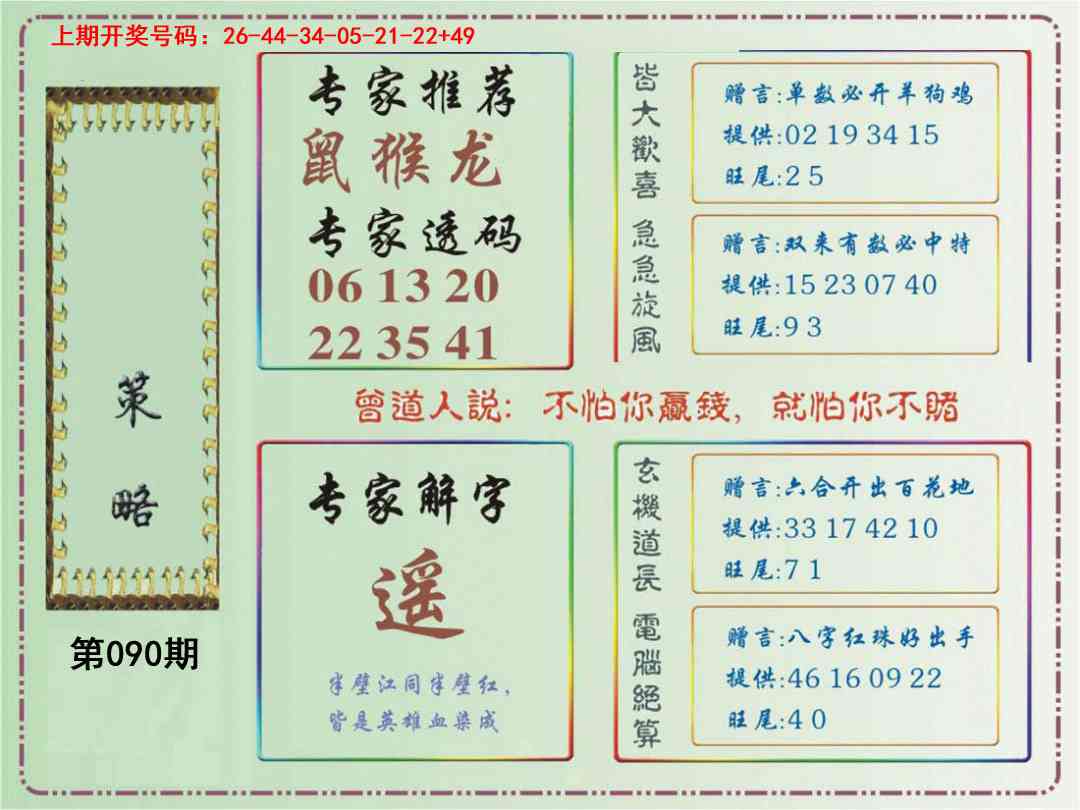 上期开奖号码：26-44-34-05-21-22+49
策略
第090期
专家推荐
鼠猴龙
专家透码
06 13 20
22 35 41
皆大歡喜
赠言:单数必开羊狗鸡
提供:02 19 34 15
旺尾:2 5
急急旋风
赠言:双来有数必中特
提供:15 23 07 40
旺尾:9 3
曾道人説: 不怕你贏錢, 就怕你不賭
专家解字
遥
半壁江同半壁红,
皆是英雄血染成
玄機道長
赠言:六合开出百花地
提供:33 17 42 10
旺尾:7 1
電腦絕算
赠言:八字红珠好出手
提供:46 16 09 22
旺尾:4 0